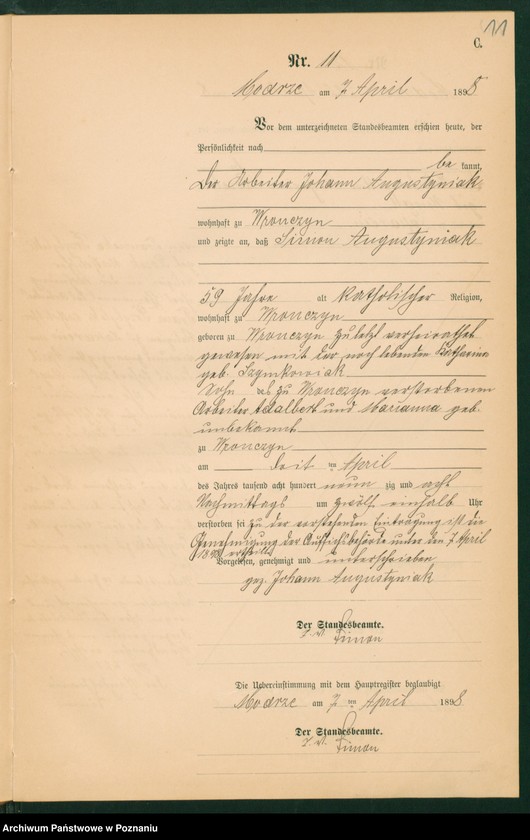 11
C.
Nr. 11
Modrze am 7 April 1898
Vor dem unterzeichneten Standesbeamten erschien heute, der
Persönlichkeit nach
be kannt,
Der Arbeiter Johann Augustyniak
wohnhaft zu Wronczyn
und zeigte an, daß Simon Augustyniak
59 Jahre alt katholischer Religion,
wohnhaft zu Wronczyn
geboren zu Wronczyn zuletzt verheirathet
gewesen mit der noch lebenden Katharina
geb. Szymkowiak
Sohn des zu Wronczyn verstorbenen
Arbeiter Adalbert und Marianna geb.
unbekannt
zu Wronczyn
am April
des Jahres tausend acht hundert neun zig und acht
Nachmittags um zwölf einhalb Uhr
verstorben sei zu der vorstehenden Eintragung ist die
Genehmigung der Aufsichtsbehörde unter den 7 April
1898 ertheilt
Vorgelesen, genehmigt und unterschrieben
gez. Johann Augustyniak
Der Standesbeamte.
Simon
Die Uebereinstimmung mit dem Hauptregister beglaubigt
Modrze am 7 ten April 1898
Der Standesbeamte.
Simon
Archiwum Państwowe w Poznaniu